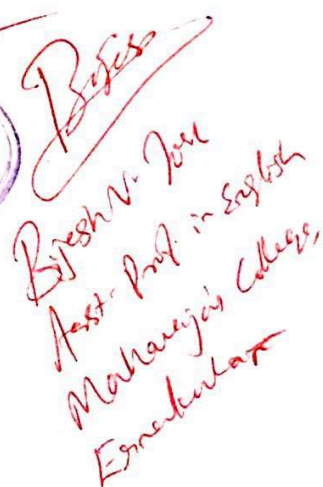 Bijesh
Bijesh V. Jose
Asst. Prof. in English
Maharaja's College,
Ernakulam